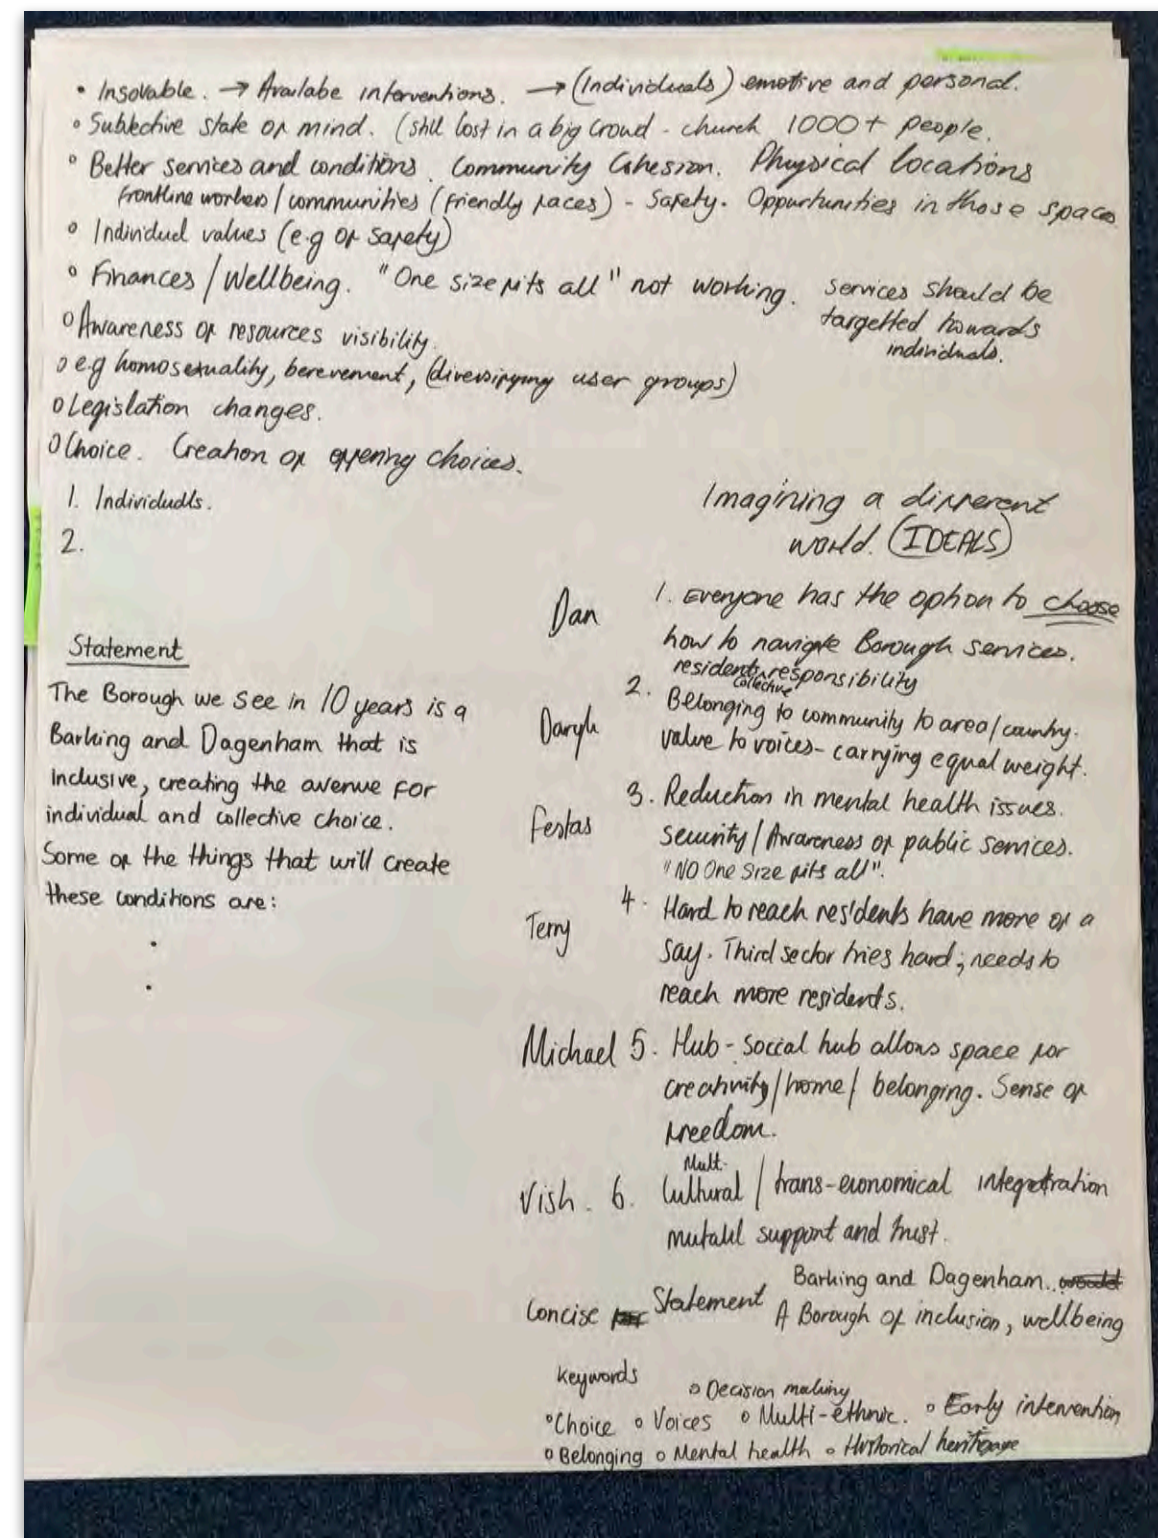 • Insovable. → Availabe interventions. → (Individuals) emotive and personal.
o Subjective state of mind. (still lost in a big crowd - church 1000+ people.
o Better services and conditions. Community Cohesion. Physical locations
frontline workers / communities (friendly faces) - Safety. Oppurtunities in those spaces
o Individual values (e.g of safety)
o Finances / Wellbeing. "One size fits all" not working. services should be
targetted towards
individuals.
o Awareness of resources visibility.
o e.g homosexuality, berevement, (diversifying user groups)
o Legislation changes.
o Choice. Creation of offering choices.
1. Individuals.
2.
Imagining a different
world. (IDEALS)
Statement
The Borough we see in 10 years is a
Barking and Dagenham that is
inclusive, creating the avenue for
individual and collective choice.
Some of the things that will create
these conditions are:
•
•
Dan 1. Everyone has the option to choose
how to navigate Borough services.
residents responsibility
collective
Daryl 2. Belonging to community to area/country.
value to voices- carrying equal weight.
Festas 3. Reduction in mental health issues.
security/Awareness of public services.
"NO One Size fits all".
Terry 4. Hard to reach residents have more of a
say. Third sector tries hard; needs to
reach more residents.
Michael 5. Hub - social hub allows space for
creativity/home/ belonging. Sense of
freedom.
Mult.
Vish. 6. Cultural / trans-economical integration
mutaul support and trust.
Concise Statement Barking and Dagenham..
A Borough of inclusion, wellbeing
Keywords
o Decision making
o Choice o Voices o Multi-ethnic. o Early intervention
o Belonging o Mental health o Historical heritage